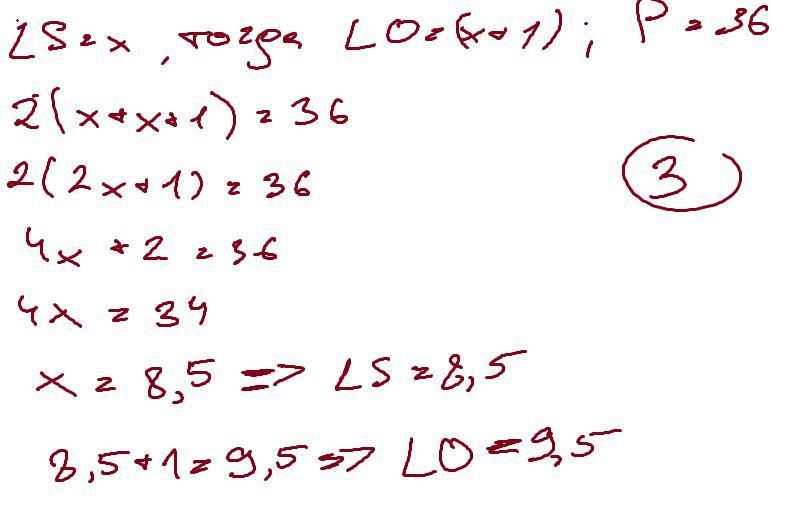 LS = x, тогда LO = (x+1); P = 36
2(x+x+1) = 36
2(2x+1) = 36
3
4x + 2 = 36
4x = 34
x = 8,5 => LS = 8,5
8,5+1 = 9,5 => LO = 9,5